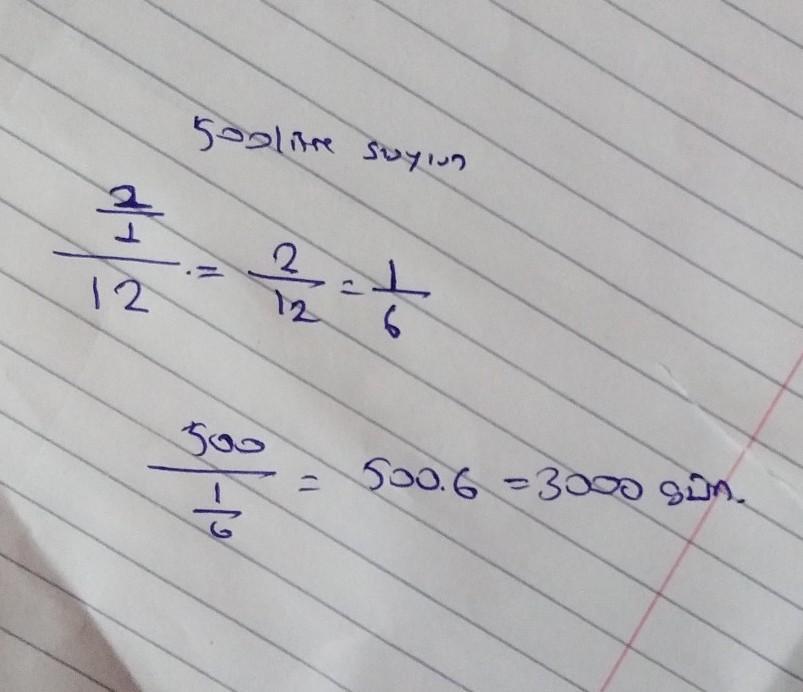 500 litre suyun
2/1 / 12 = 2/12 = 1/6
500 / 1/6 = 500.6 = 3000 gün.